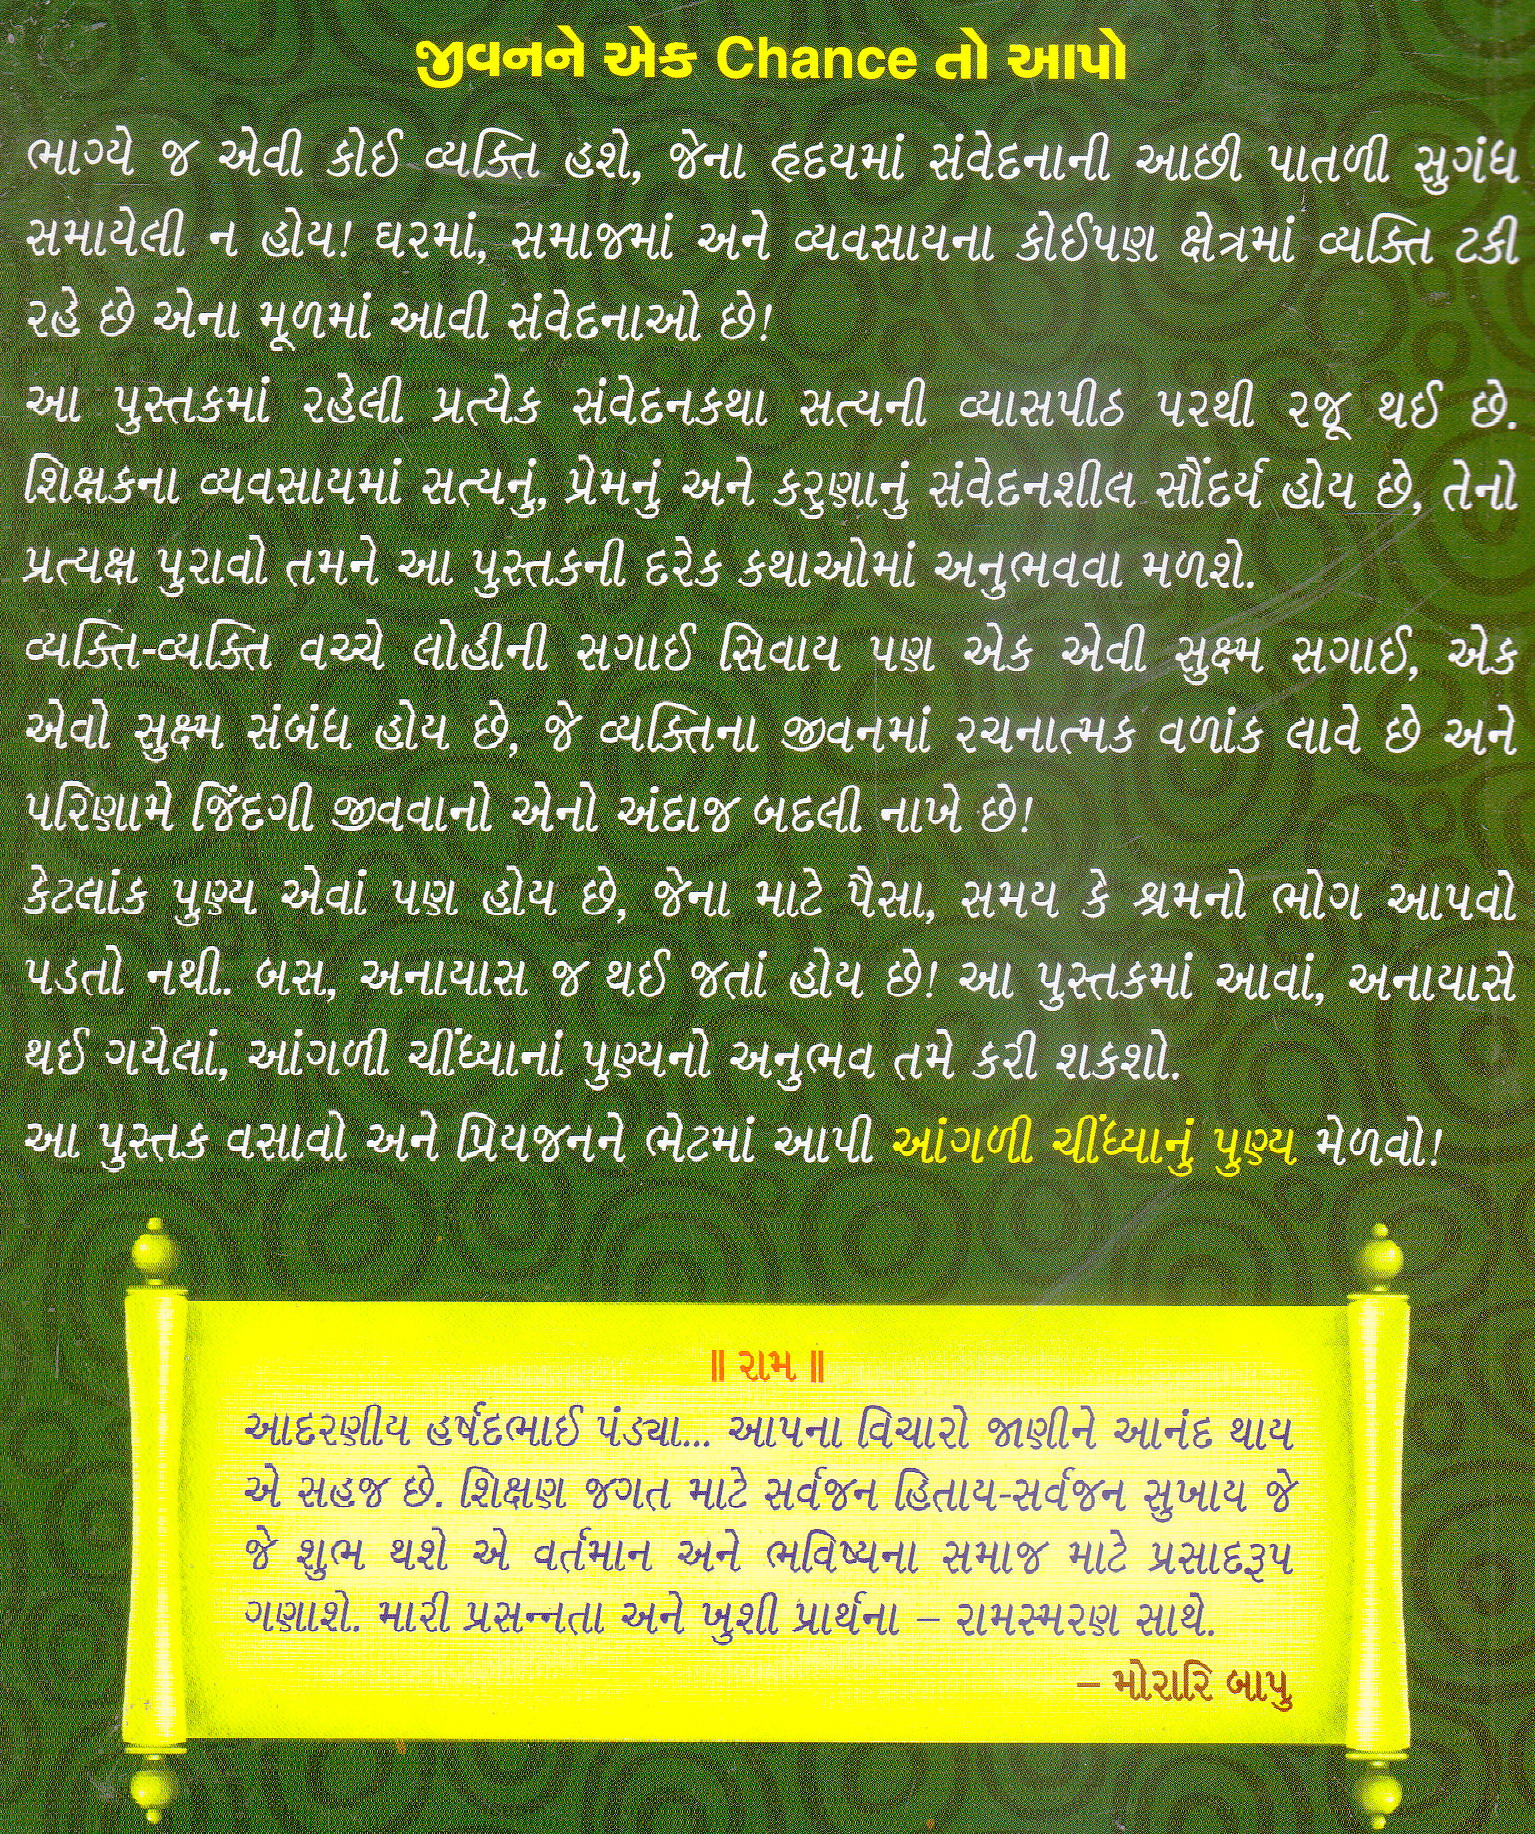 જીવનને એક Chance તો આપો
ભાગ્યે જ એવી કોઈ વ્યક્તિ હશે, જેના હૃદયમાં સંવેદનાની આછી પાતળી સુગંધ
સમાયેલી ન હોય! ઘરમાં, સમાજમાં અને વ્યવસાયના કોઈપણ ક્ષેત્રમાં વ્યક્તિ ટકી
રહે છે એના મૂળમાં આવી સંવેદનાઓ છે!
આ પુસ્તકમાં રહેલી પ્રત્યેક સંવેદનકથા સત્યની વ્યાસપીઠ પરથી રજૂ થઈ છે.
શિક્ષકના વ્યવસાયમાં સત્યનું, પ્રેમનું અને કરુણાનું સંવેદનશીલ સૌંદર્ય હોય છે, તેનો
પ્રત્યક્ષ પુરાવો તમને આ પુસ્તકની દરેક કથાઓમાં અનુભવવા મળશે.
વ્યક્તિ-વ્યક્તિ વચ્ચે લોહીની સગાઈ સિવાય પણ એક એવી સુક્ષ્મ સગાઈ, એક
એવો સુક્ષ્મ સંબંધ હોય છે, જે વ્યક્તિના જીવનમાં રચનાત્મક વળાંક લાવે છે અને
પરિણામે જિંદગી જીવવાનો એનો અંદાજ બદલી નાખે છે!
કેટલાંક પુણ્ય એવાં પણ હોય છે, જેના માટે પૈસા, સમય કે શ્રમનો ભોગ આપવો
પડતો નથી. બસ, અનાયાસ જ થઈ જતાં હોય છે! આ પુસ્તકમાં આવાં, અનાયાસે
થઈ ગયેલાં, આંગળી ચીંધ્યાનાં પુણ્યનો અનુભવ તમે કરી શકશો.
આ પુસ્તક વસાવો અને પ્રિયજનને ભેટમાં આપી આંગળી ચીંધ્યાનું પુણ્ય મેળવો!
॥ રામ ॥
આદરણીય હર્ષદભાઈ પંડ્યા... આપના વિચારો જાણીને આનંદ થાય
એ સહજ છે. શિક્ષણ જગત માટે સર્વજન હિતાય-સર્વજન સુખાય જે
જે શુભ થશે એ વર્તમાન અને ભવિષ્યના સમાજ માટે પ્રસાદરૂપ
ગણાશે. મારી પ્રસન્નતા અને ખુશી પ્રાર્થના – રામસ્મરણ સાથે.
– મોરારિ બાપુ